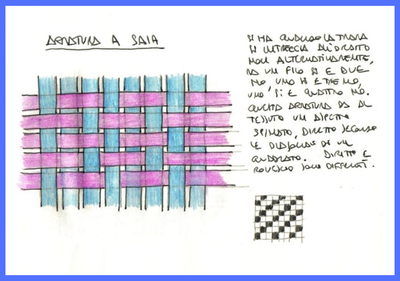 ARMATURA A SAIA
SI HA QUANDO LA TRAMA
SI INTRECCIA ALL'ORDITO
NON ALTERNATIVAMENTE,
MA UN FILO SI E DUE
NO UNO SI E TRE NO,
UNO SI E QUATTRO NO.
QUESTA ARMATURA DA AL
TESSUTO UN ASPETTO
SPINATO, DIRETTO SECONDO
LE DIAGONALI DI UN
QUADRATO. DIRITTO E
ROVESCIO SONO DIFFERENTI.